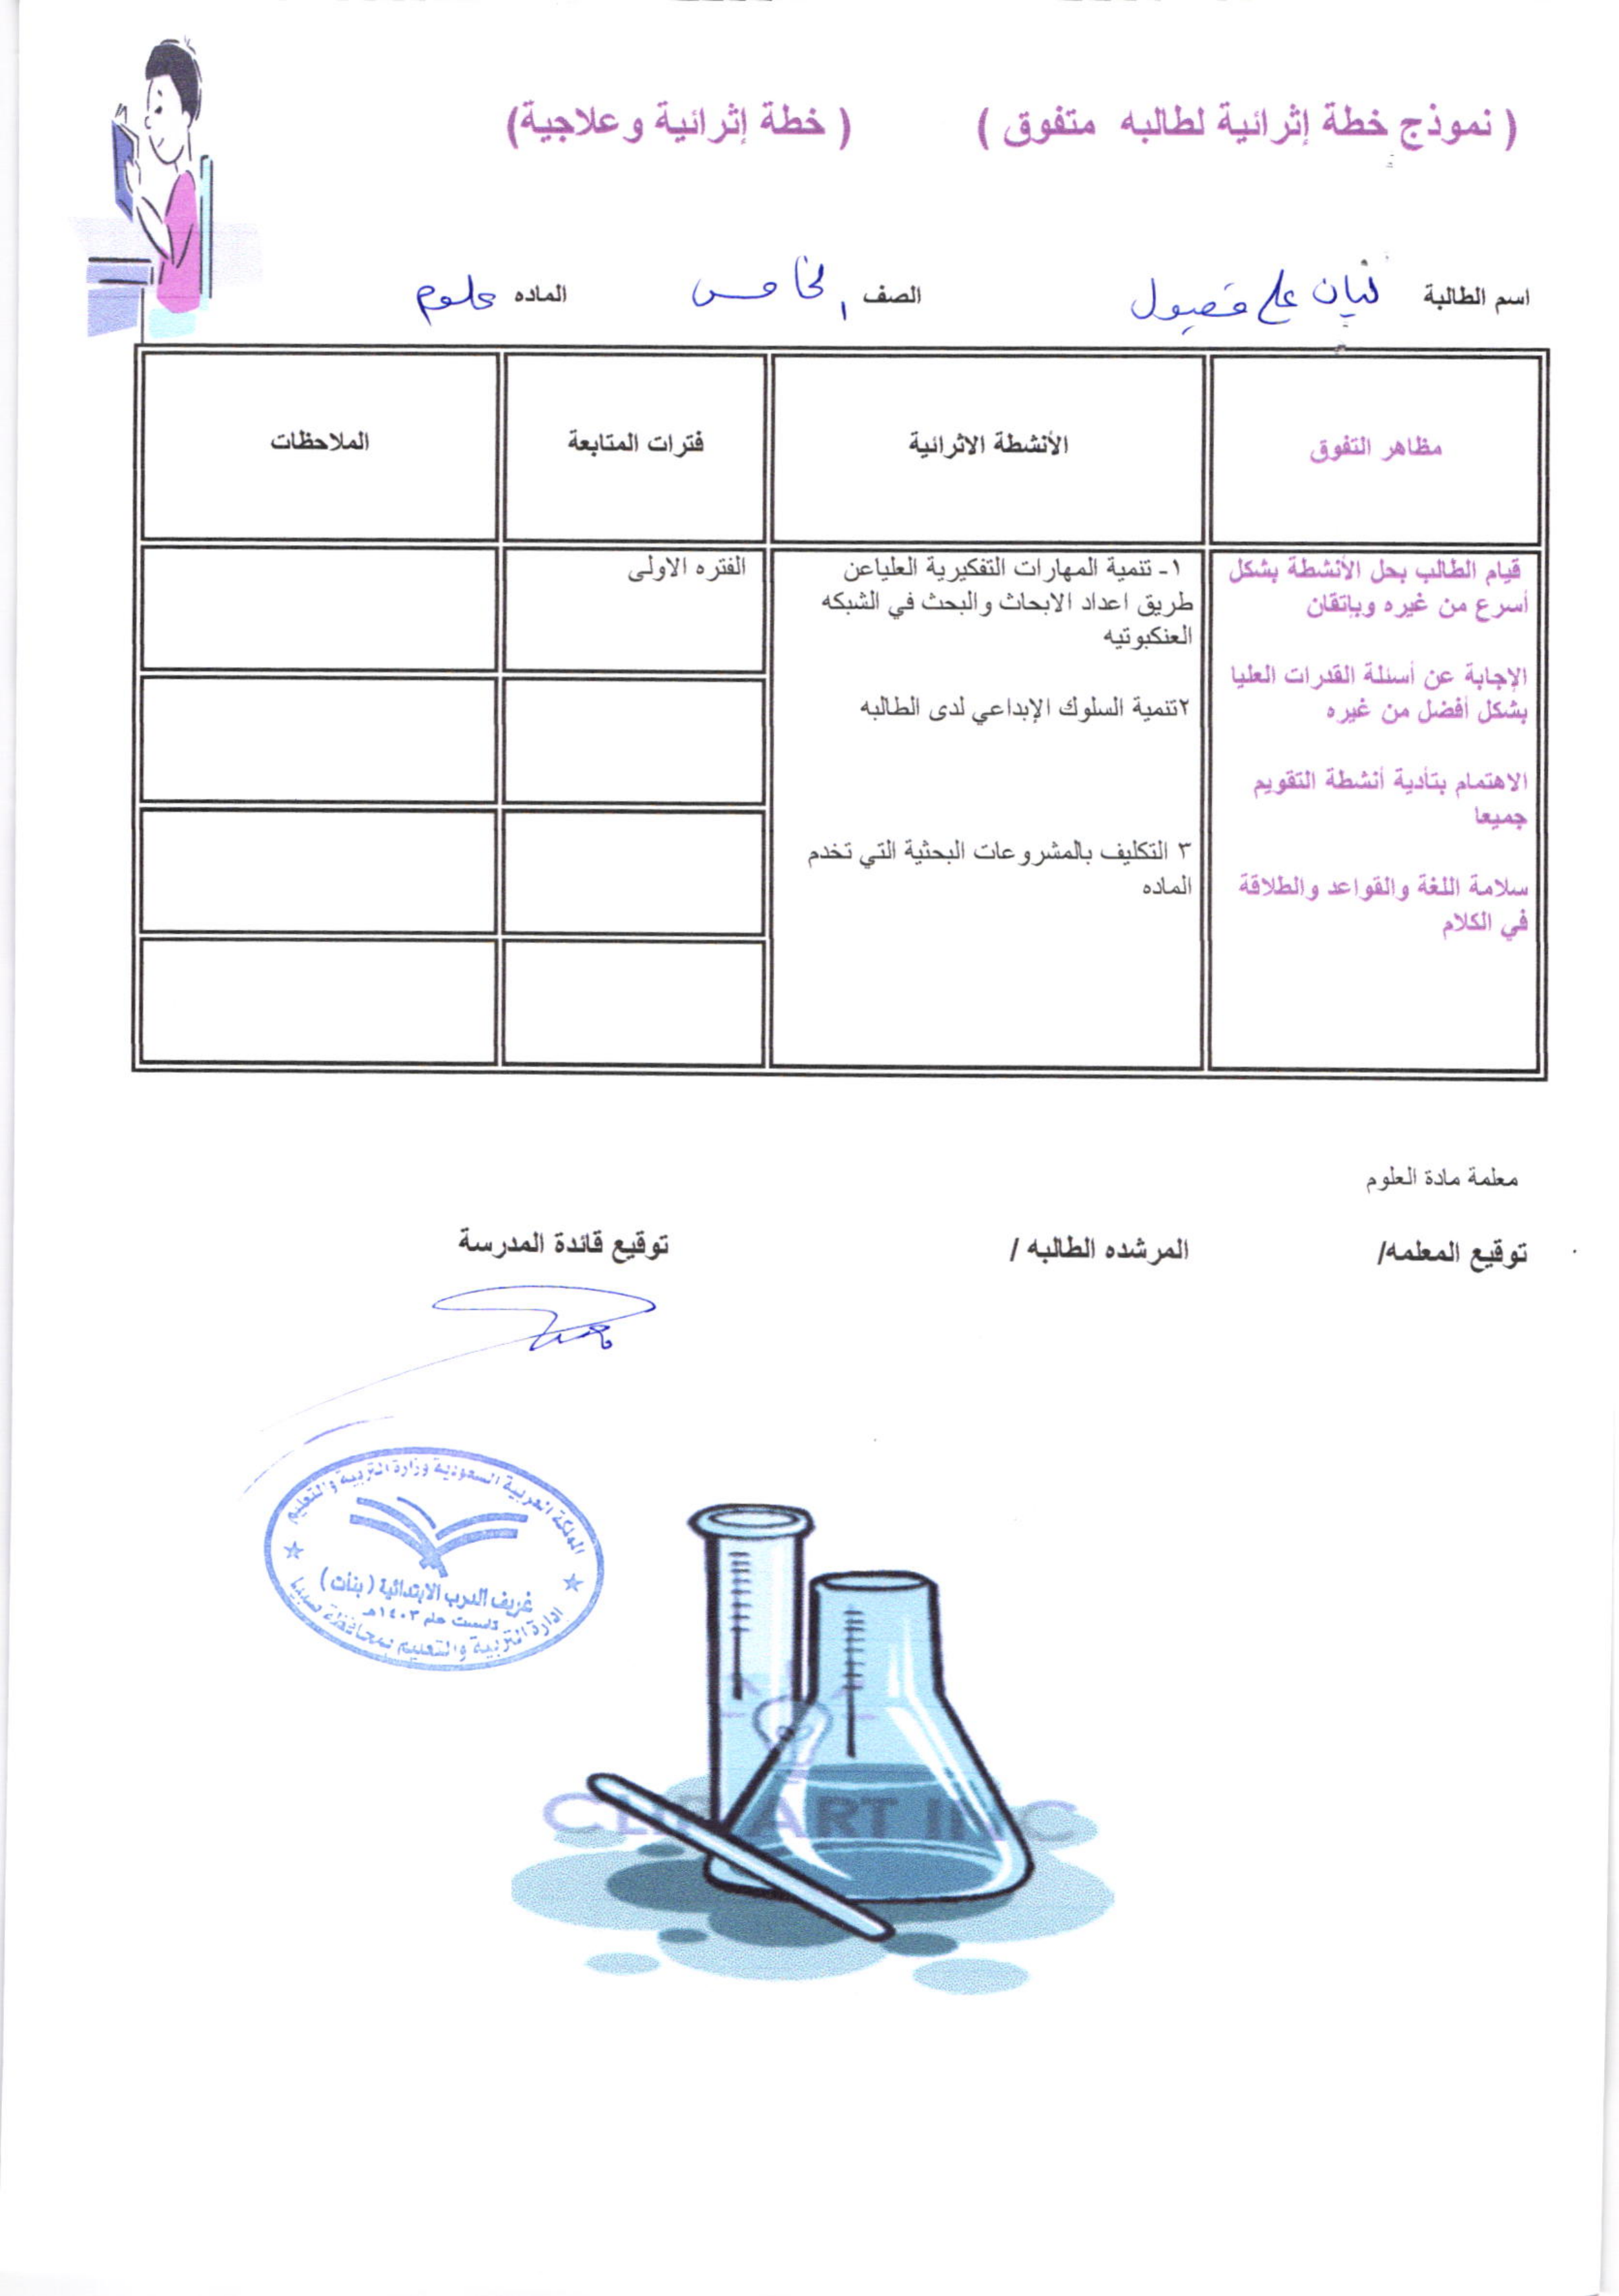 ( نموذج خطة إثرائية لطالبه متفوق ) ( خطة إثرائية وعلاجية)
اسم الطالبة ليان علي الصف الخامس الماده علوم
مظاهر التفوق
الأنشطة الاثرائية
فترات المتابعة
الملاحظات
قيام الطالب بحل الأنشطة بشكل
أسرع من غيره وبإتقان
الإجابة عن أسئلة القدرات العليا
بشكل أفضل من غيره
الاهتمام بتأدية أنشطة التقويم
جميعا
سلامة اللغة والقواعد والطلاقة
في الكلام
١- تنمية المهارات التفكيرية العلياعن
طريق اعداد الابحاث والبحث في الشبكه
العنكبوتيه
٢تنمية السلوك الإبداعي لدى الطالبه
٣ التكليف بالمشروعات البحثية التي تخدم
الماده
الفتره الاولى
معلمة مادة العلوم
توقيع المعلمه/ المرشده الطالبه / توقيع قائدة المدرسة
المملكة العربية السعودية وزارة التربية والتعليم
غريف الدرب الابتدائية ( بنات )
تأسست عام ١٤٠٣هـ
ادارة التربية والتعليم بمحافظة صبيا
CLIPART INC